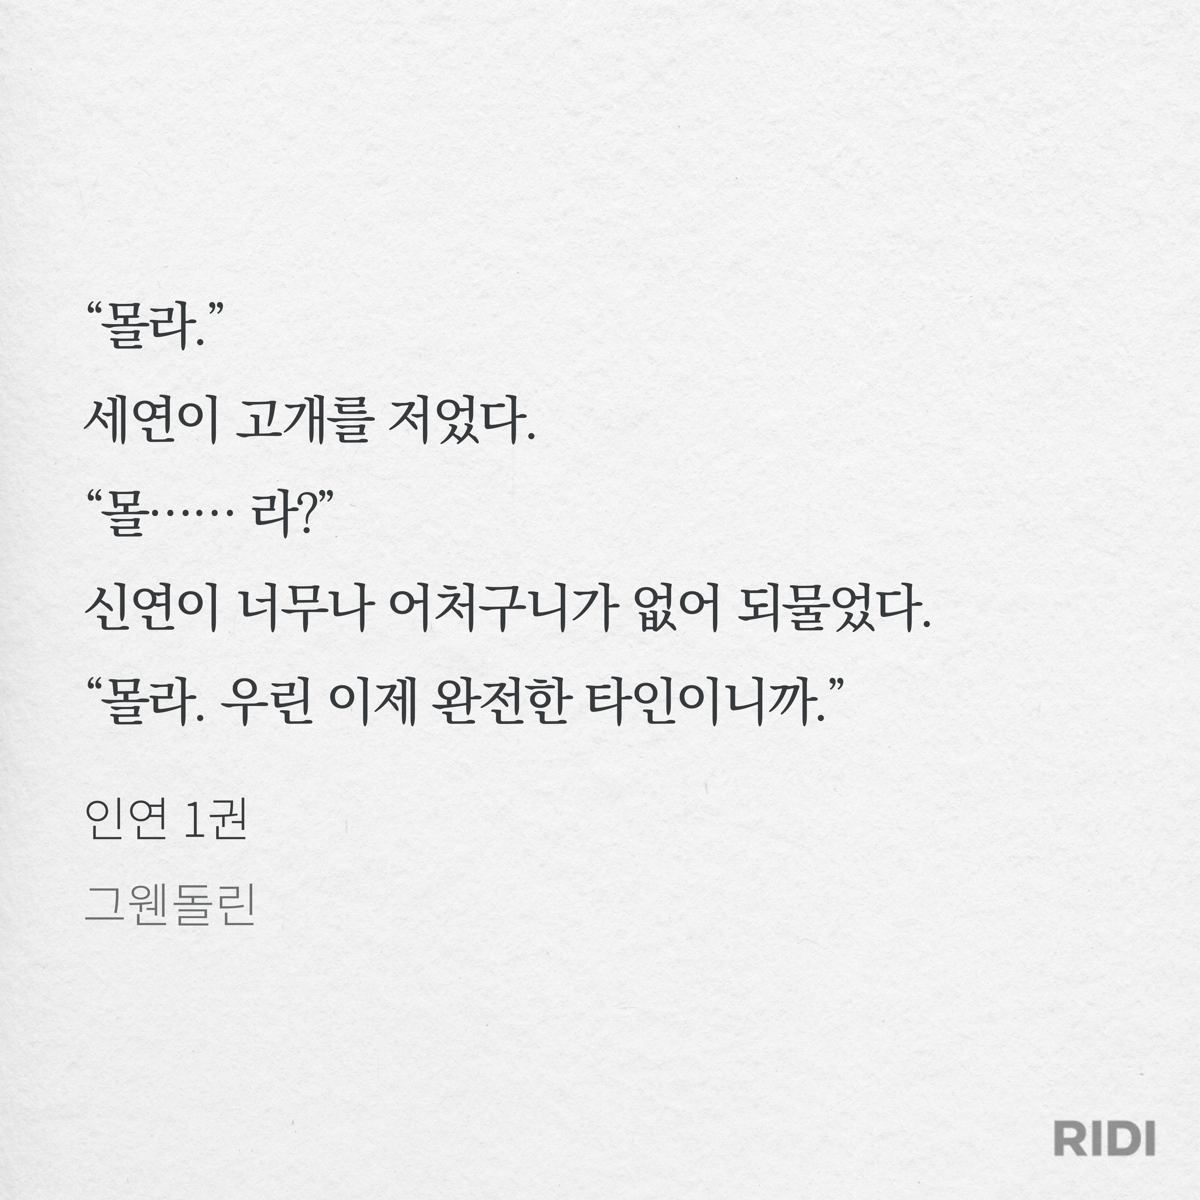 “몰라.”
세연이 고개를 저었다.
“몰…… 라?”
신연이 너무나 어처구니가 없어 되물었다.
“몰라. 우린 이제 완전한 타인이니까.”
인연 1권
그웬돌린
RIDI